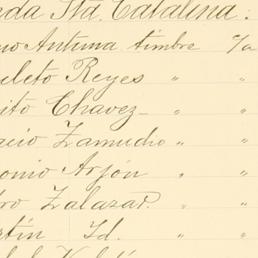 nda Sta. Catalina:
no Antuna timbre c/a
uleto Reyes " "
nito Chavez " "
acio Zamucho " "
onio Arjón " "
dro Zalazar. " "
rtín Id. " "